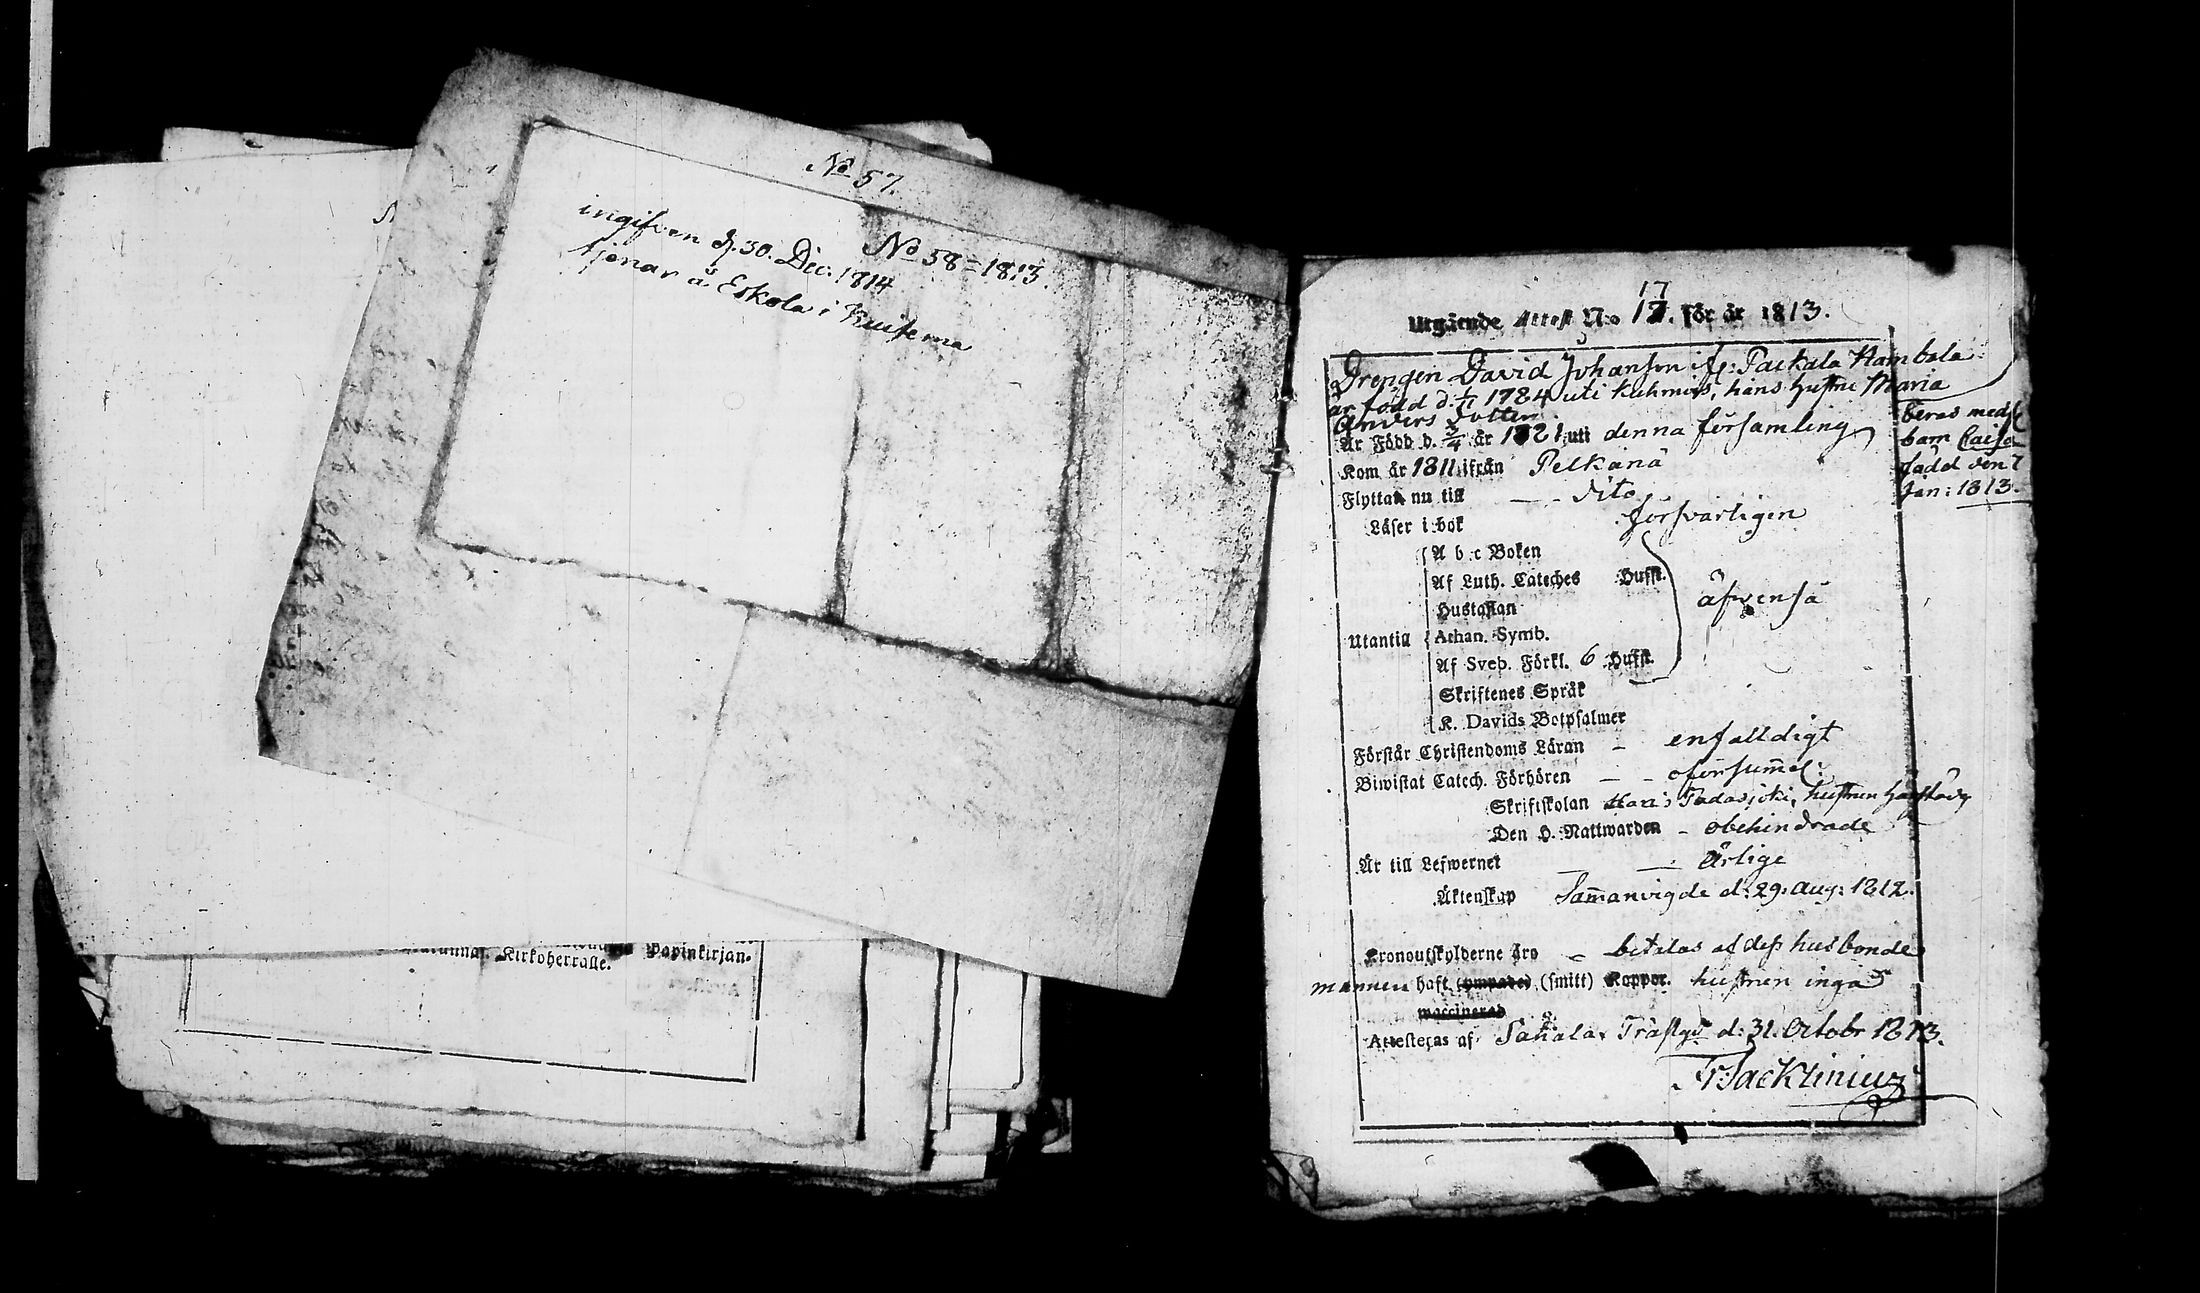 No 57.
No 58 = 1813.
ingifven d. 30. Dec: 1814
tjenar å Eskola i Kuisema
Kirkoherralle. Papinkirjan.
17
Utgående Attest N:o 17. för år 1813.
Drengen David Johansson ifr: Paikala Hambala
är född d. 1/11 1784 uti Kuhmois, hans hustru Maria
Anders dotter
Är Född d. 3/4 år 1821 uti denna församling
Kom år 1811 ifrån Pelkänä
Flyttar nu till — — dito
beras med
barn Caisa
född den 7
Jan: 1813.
Läser i bok försvarligen
A b c Boken
Af Luth. Cateches Hufst.
Hustaflan
Utantill Athan. Symb.
äfvenså
Af Sveb. Förkl. 6 Hufst.
Skriftenes Språk
K. Davids Botpsalmer
Förstår Christendoms Läran – enfalldigt
Biwistat Catech. Förhören — – oförsummel:
Skriftskolan hustrun
Den H. Nattwarden – obehindrade
Är till Lefwernet — — ärlige
Äktenskap Sam̄anvigde d: 29. Aug: 1812.
Kronoutskylderne äro – betalas af dess husbonde
mannen haft (ympade) (smitt) Koppor. hustrun inga
waccinerad
Attesteras af Sahalax Prästgd d: 31. Octobr 1813.
Fr: Jacklinius